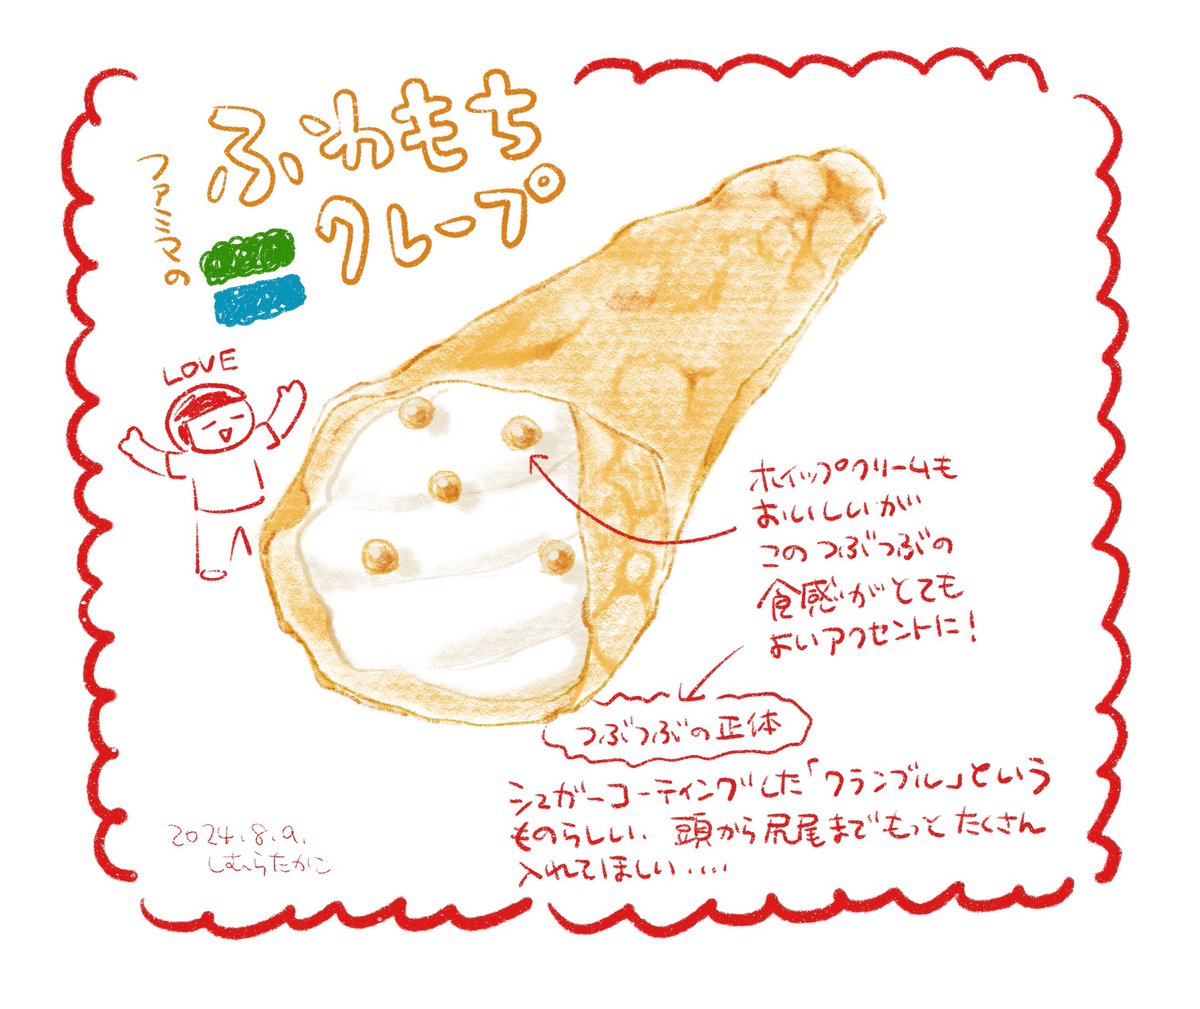 ファミマの
ふわもち
クレープ
LOVE
ホイップクリームも
おいしいが
このつぶつぶの
食感がとても
よいアクセントに！
つぶつぶの正体
シュガーコーティングした「クランブル」という
ものらしい. 頭から尻尾までもっとたくさん
入れてほしい....
2024.8.9.
しむらたかこ